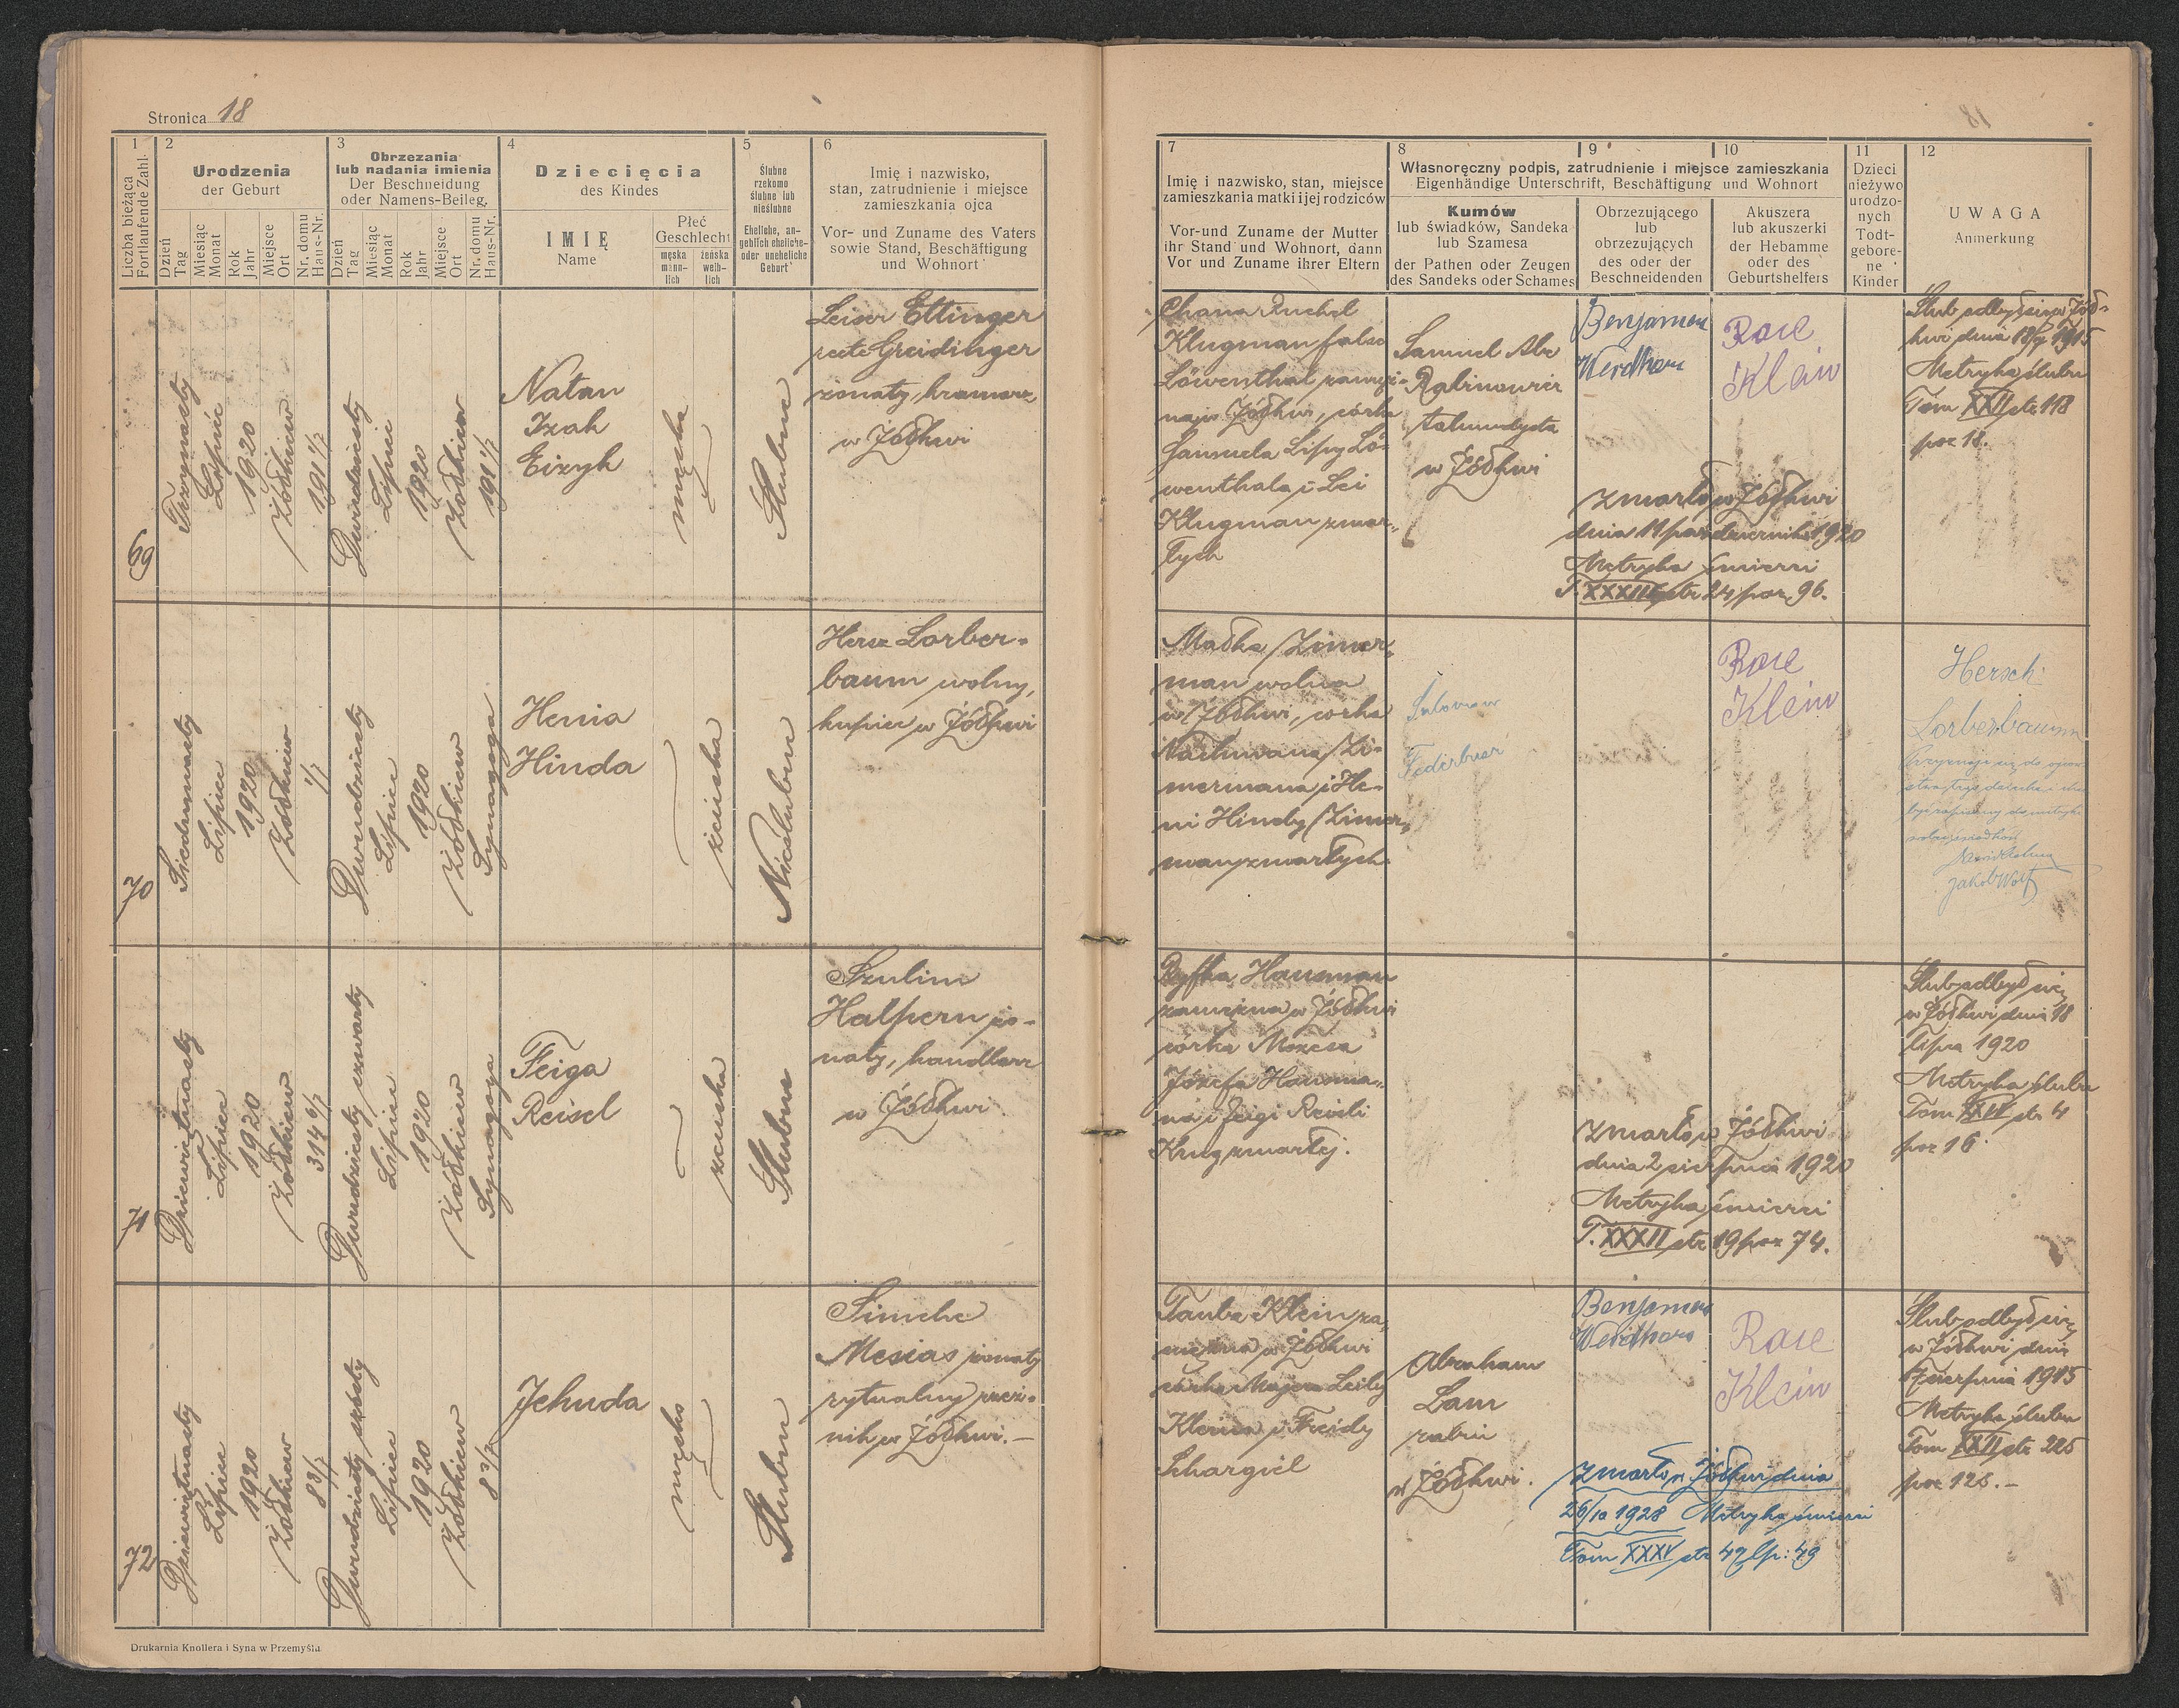 Stronica 18
1
Liczba bieżąca
Fortlaufende Zahl.
2
Urodzenia
der Geburt
Dzień
Tag
Miesiąc
Monat
Rok
Jahr
Miejsce
Ort
Nr. domu
Haus-Nr.
3
Obrzezania
lub nadania imienia
Der Beschneidung
oder Namens-Beileg.
Dzień
Tag
Miesiąc
Monat
Rok
Jahr
Miejsce
Ort
Nr. domu
Haus-Nr.
4
Dziecięcia
des Kindes
IMIĘ
Name
Płeć
Geschlecht
męska
männ-
lich
żeńska
weib-
lich
5
Ślubne
rzekomo
ślubne lub
nieślubne
Eheliche, an-
geblich eheliche-
oder uneheliche
Geburt
6
Imię i nazwisko,
stan, zatrudnienie i miejsce
zamieszkania ojca
Vor- und Zuname des Vaters
sowie Stand, Beschäftigung
und Wohnort
7
Imię i nazwisko, stan, miejsce
zamieszkania matki i jej rodziców
Vor-und Zuname der Mutter
ihr Stand und Wohnort, dann
Vor und Zuname ihrer Eltern
8
9
10
Własnoręczny podpis, zatrudnienie i miejsce zamieszkania
Eigenhändige Unterschrift, Beschäftigung und Wohnort
Kumów
lub świadków, Sandeka
lub Szamesa
der Pathen oder Zeugen
des Sandeks oder Schames
Obrzezującego
lub
obrzezujących
des oder der
Beschneidenden
Akuszera
lub akuszerki
der Hebamme
oder des
Geburtshelfers
11
Dzieci
nieżywo
urodzo-
nych
Todt-
gebore-
ne
Kinder
12
UWAGA
Anmerkung
69
Trzynasty
Lipiec
1920
Żółkiew
191 1/7
Dwudziesty
Lipiec
1920
Żółkiew
191 1/7
Natan
Izak
Eizyk
męska
Ślubne
Leiser Ettinger
recte Greidinger
żonaty, kramarz
w Żółkwi
Chana Ruchel
Klugman false
Löwenthal zamęż-
na w Żółkwi, córka
Samuela Lipy Lö-
wenthala i Lei
Klugman zmar-
łych
Samuel Abe
Rabinowicz
talmudysta
w Żółkwi
Benjamen
Werdhorn
Rose
Klein
zmarło w Żółkwi
dnia 11 października 1920
Metryka śmierci
str 24 poz. 96.
Ślub odbył się w Żół-
kwi dnia 1915
Metryka ślubu
Tom XXII str 118
poz 18.
70
Siedmnasty
Lipiec
1920
Żółkiew
1/7
Dwudziesty
Lipiec
1920
Żółkiew
Synagoga
Henia
Hinda
żeńska
Nieślubne
Hersz Lorber-
baum wolny,
kupiec w Żółkwi
Matka Zimer-
man wolna
w Żółkwi, córka
Nachmana Zi-
mermana i He-
ni Hindy Zimer-
man zmarłych
Salomon
Federbusz
Rose
Klein
Hersch
Lorberbaum
Jakob Wolf
71
Dziewiętnasty
Lipiec
1920
Żółkiew
314 6/7
Dwudziesty czwarty
Lipiec
1920
Żółkiew
Synagoga
Feiga
Reisel
żeńska
Ślubne
Szulim
Halpern żo-
naty, handlarz
w Żółkwi
Ryfka Hausman
zamężna w Żółkwi
córka Mozesa
Józefa Hausma-
na i Feigi Reisli
Krug zmarłej.
zmarło w Żółkwi
dnia 2 sierpnia 1920
Metryka śmierci
T. XXXII str 19 poz 74.
Ślub odbył się
w Żółkwi dnia 18
lipca 1920
Metryka ślubu
Tom XXIV str 4
poz 16
72
Dziewiętnasty
Lipiec
1920
Żółkiew
8 3/7
Dwudziesty szósty
Lipiec
1920
Żółkiew
8 3/7
Jehuda
męska
Ślubne
Simche
Mesias żonaty
rytualny rzeź-
nik w Żółkwi.—
Taube Klein za-
mężna w Żółkwi
córka Majera Leiby
Kleina i Freidy
Schargiel
Abraham
Lam
rabin
w Żółkwi.
Benjamen
Werdhorn
Rose
Klein
zmarło w Żółkwi dnia
26/10 1928 Metryka śmierci
Tom XXXV str 47 lp: 49
Ślub odbył się
w Żółkwi dnia
sierpnia 1915
Metryka ślubu
Tom XXII str 225
poz 126.—
Drukarnia Knollera i Syna w Przemyślu